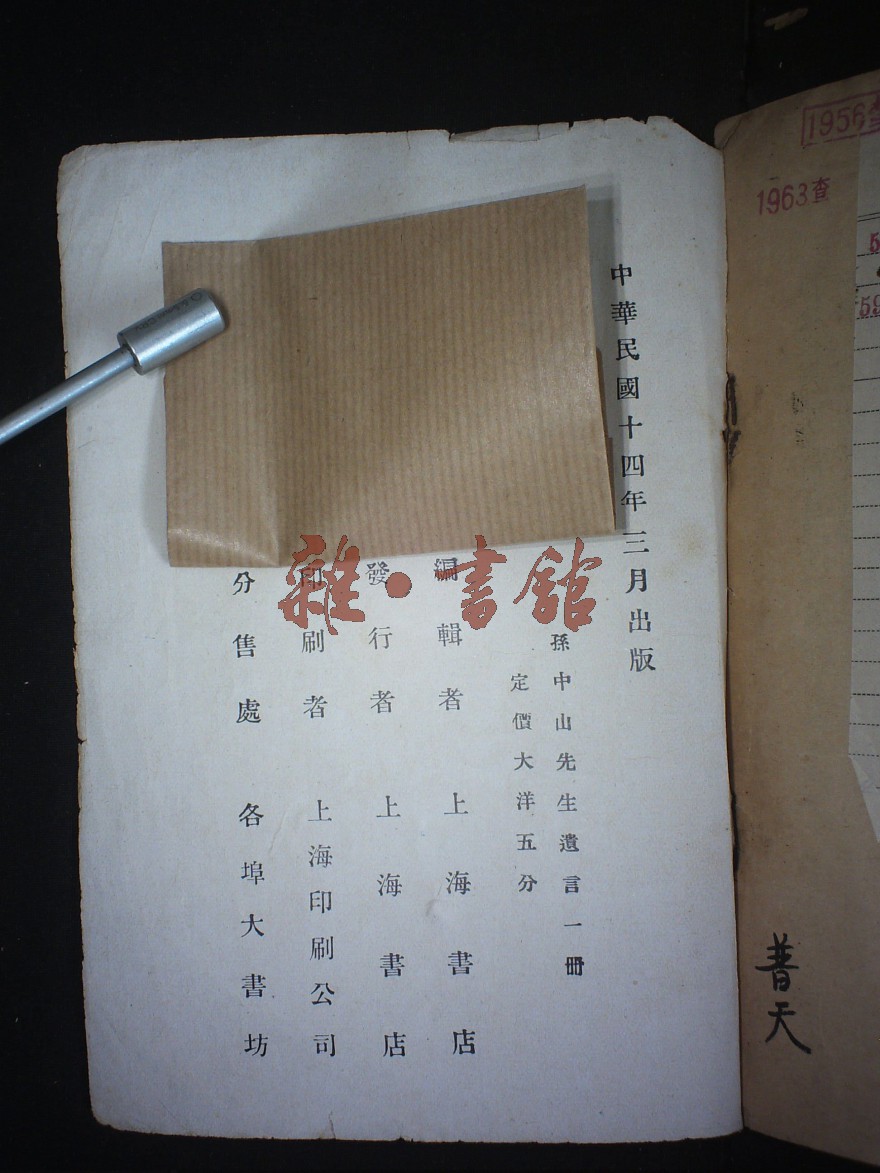 中華民國十四年三月出版
孫中山先生遺言一冊
定價大洋五分
編輯者 上海書店
發行者 上海書店
印刷者 上海印刷公司
分售處 各埠大書坊
雜·書館
1956查
1963查
普天